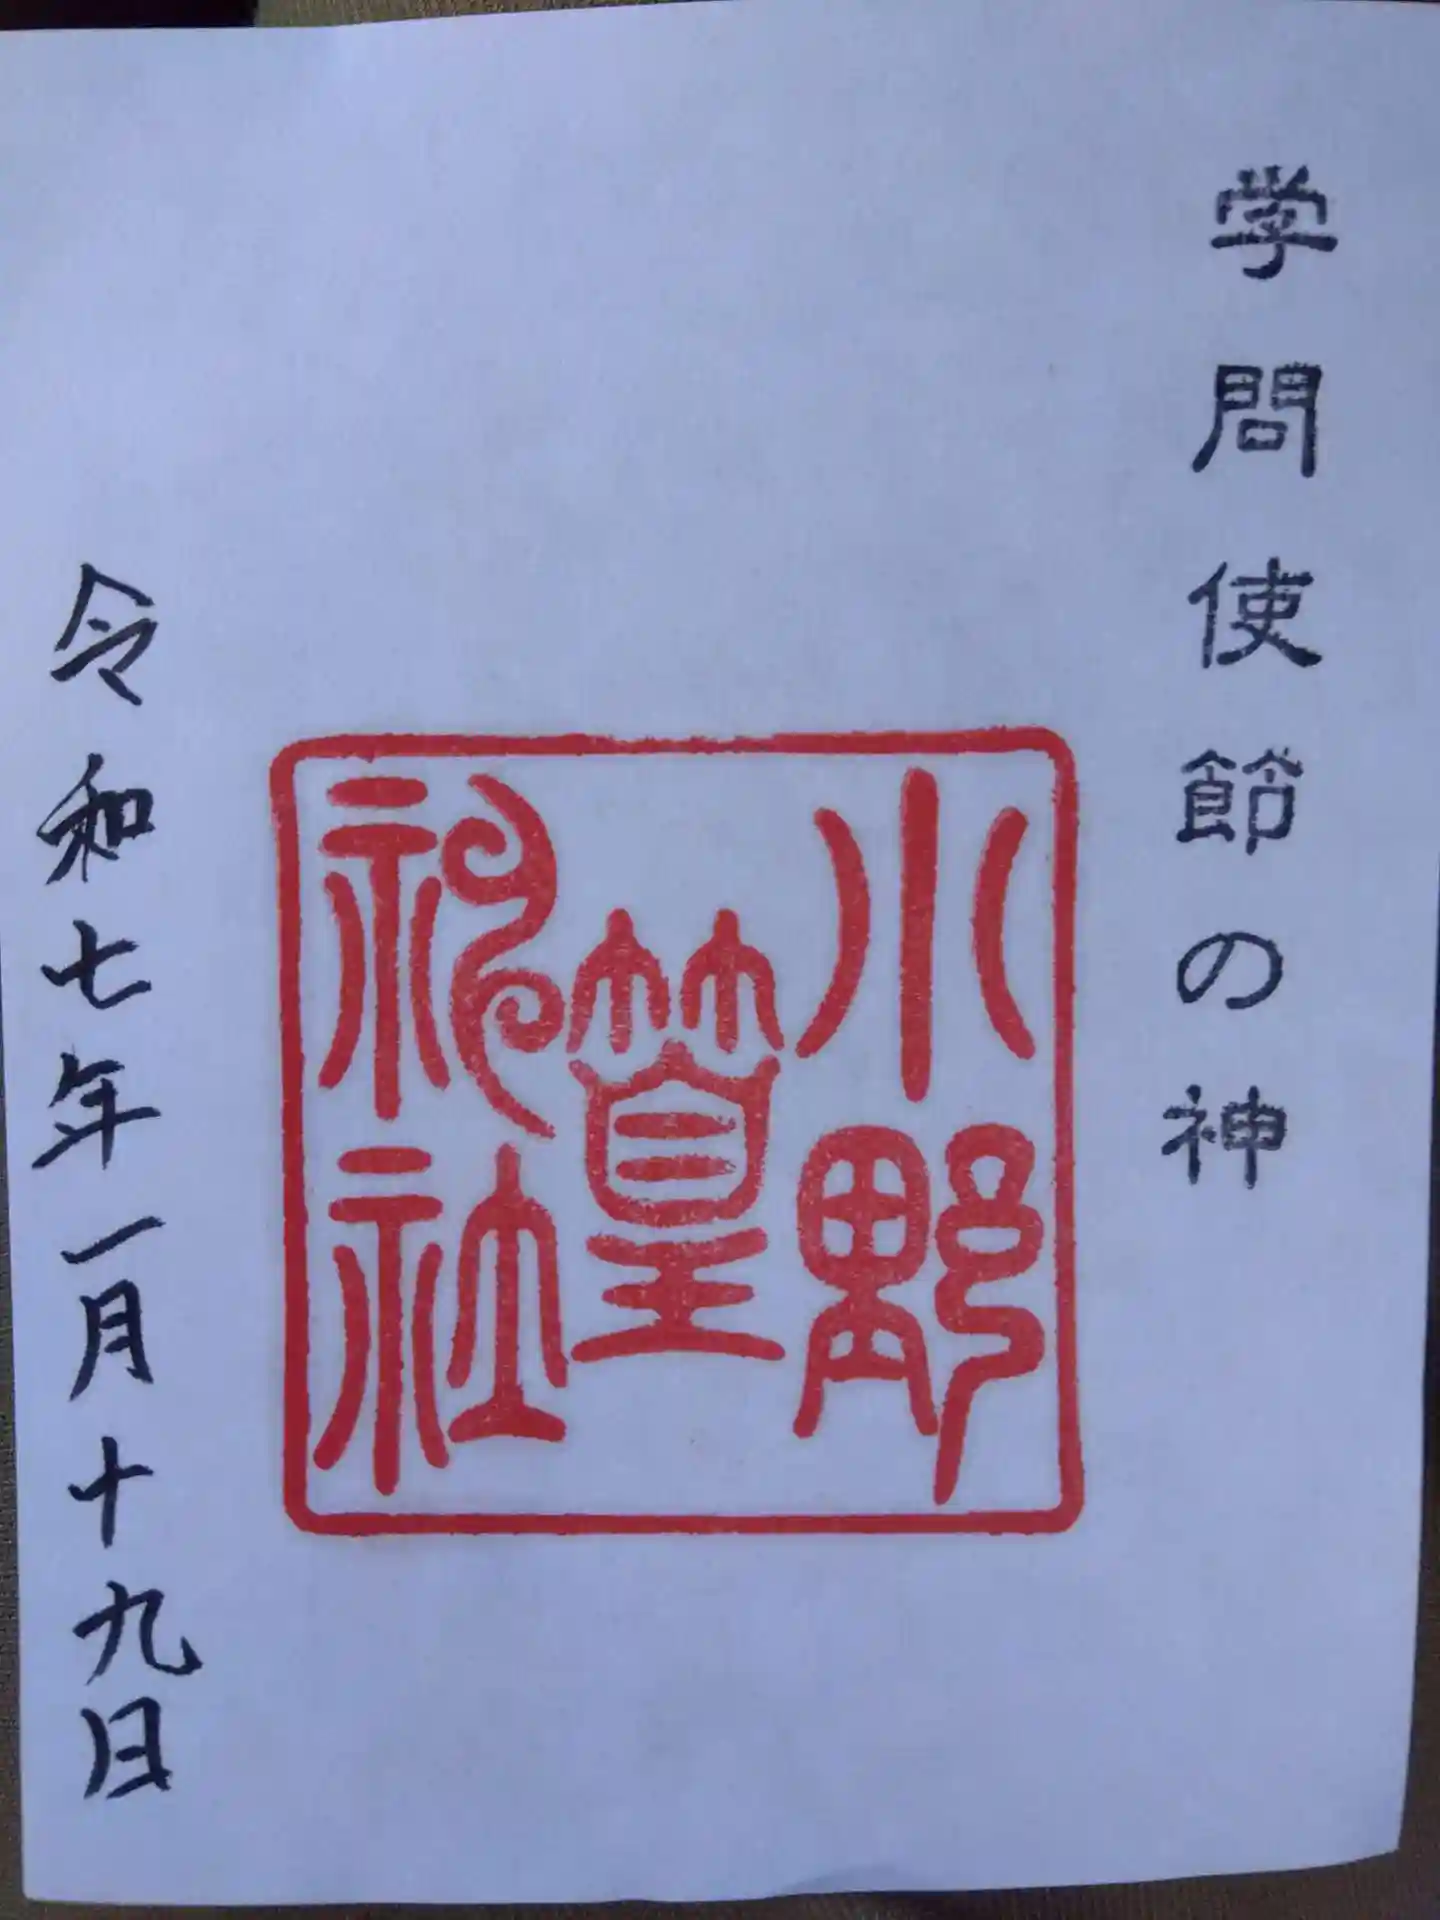 学問使節の神
小野
篁
神社
令和七年一月十九日